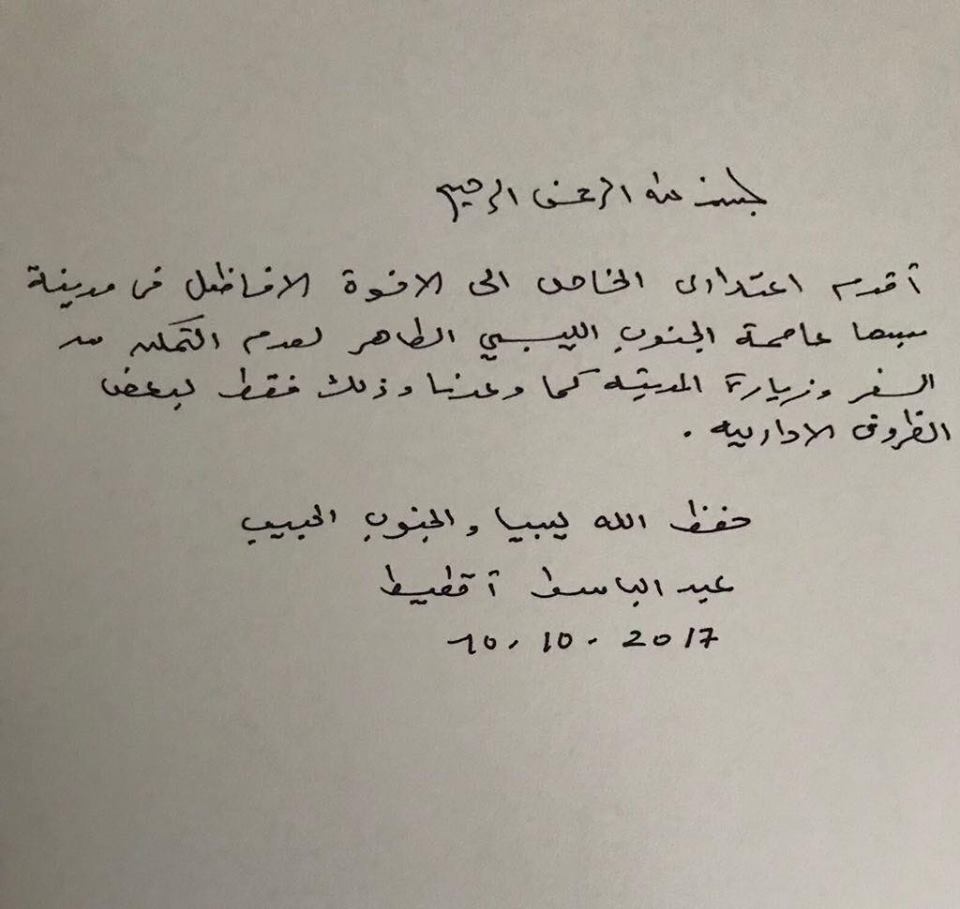 بسم الله الرحمن الرحيم
أقدم اعتذارى الخاص الى الاخوة الافاظل فى مدينة
سبها عاصمة الجنوب الليبي الطاهر لعدم التمكن من
السفر وزيارة المدينه كما وعدنا وذلك فقط لبعض
الظروف الاداريه .
حفظ الله ليبيا والجنوب الحبيب
عبد الباسط اقطيط
10. 10. 2017